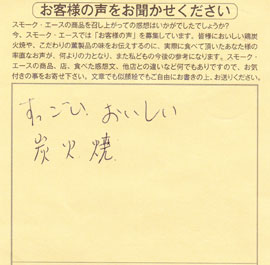 お客様の声をお聞かせください
スモーク・エースの商品を召し上がっての感想はいかがでしたでしょうか?
今、スモーク・エースでは「お客様の声」を募集しています。皆様においしい鶏炭
火焼や、こだわりの薫製品の味をお伝えするのに、実際に食べて頂いたあなた様の
率直なお声が、何よりの力となり、また私どもの今後の参考になります。スモーク・
エースの商品、店、食べた感想文、他店との違いなど何でもありですので、お気
付きの事をお寄せ下さい。文章でも似顔絵でもご自由にお書きの上、お送りください。
すっごい おいしい
炭火焼